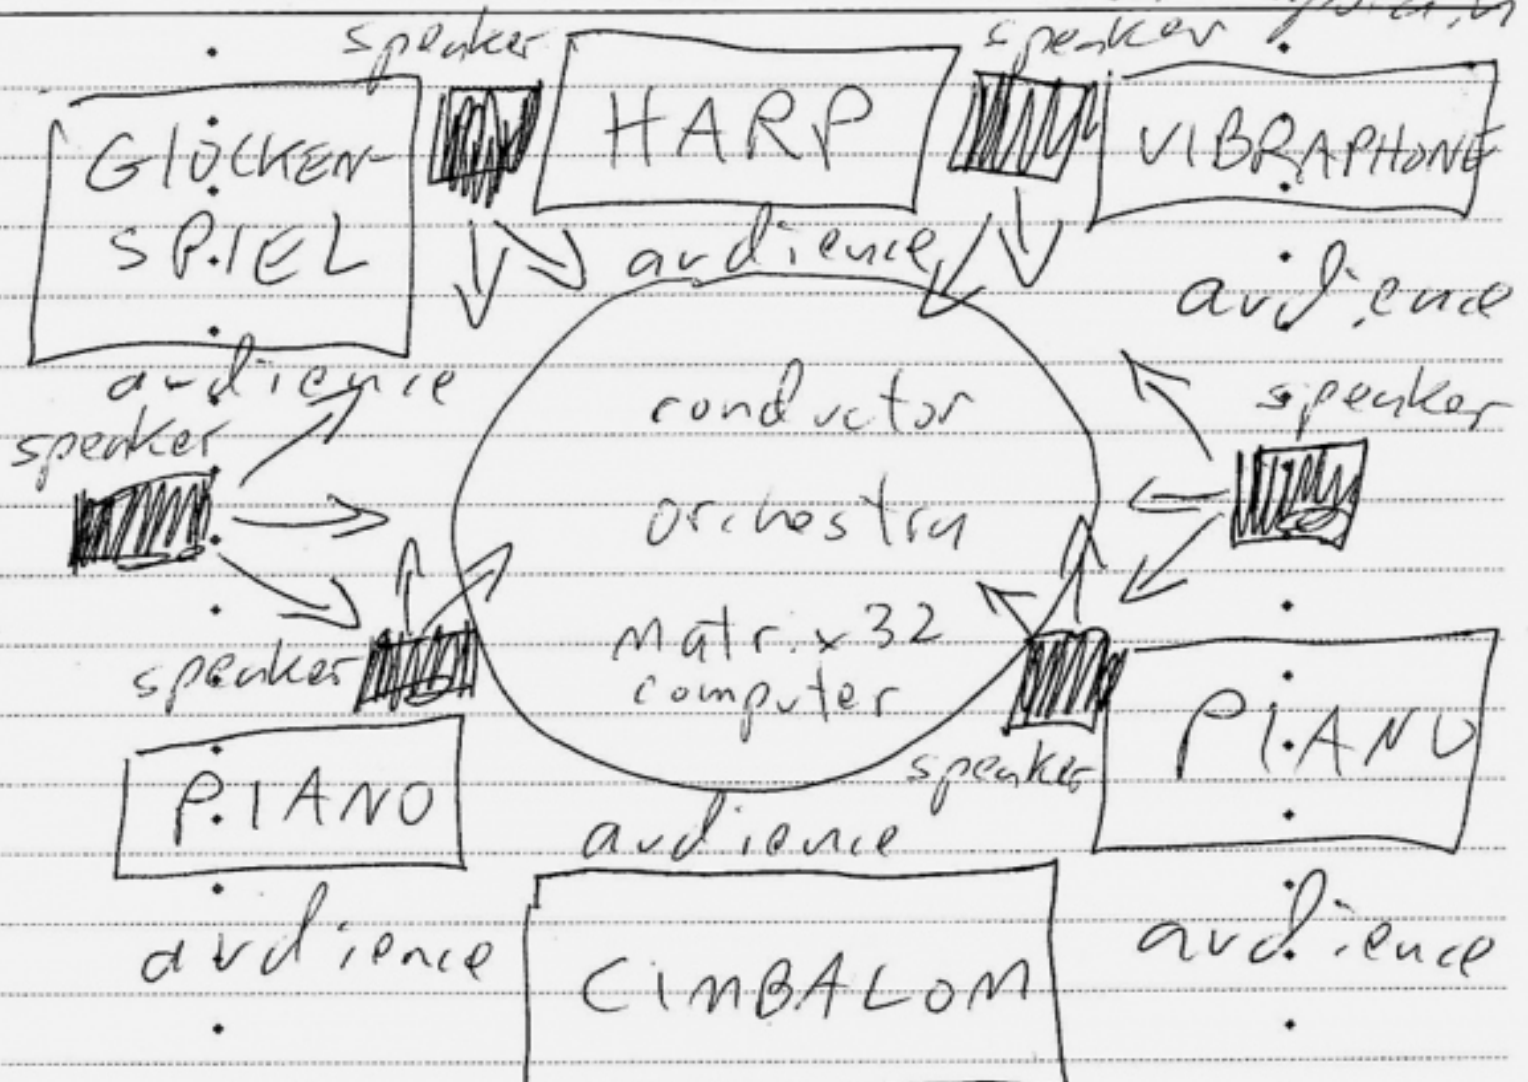 speaker
speaker
HARP
GlOCKEN-
SPIEL
VIBRAPHONE
audience
audience
audience
speaker
speaker
conductor
orchestra
matrix 32
computer
speaker
speaker
PIANO
PIANO
audience
audience
audience
CIMBALOM